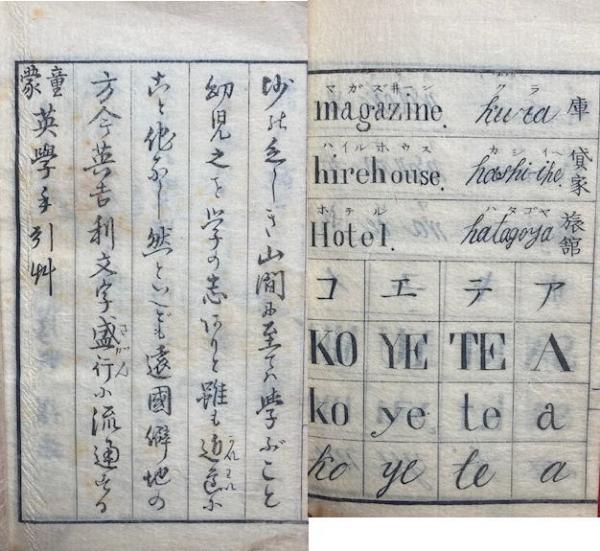 童蒙英學手引艸
方今英吉利文字盛行小流通する
さかん
こと他なし然といへども遠國僻地の
幼児之を学の志ありと雖も
しき山間に至ては学ぶこと
マガズヰーン クラ
magazine. kura 庫
ハイルホウス カシイヘ
hirehouse. kashi-ihe. 貸家
ホテル ハタゴヤ
Hotel. hatagoya 旅館
コ エ テ ア
KO YE TE A
ko ye te a
ko ye te a